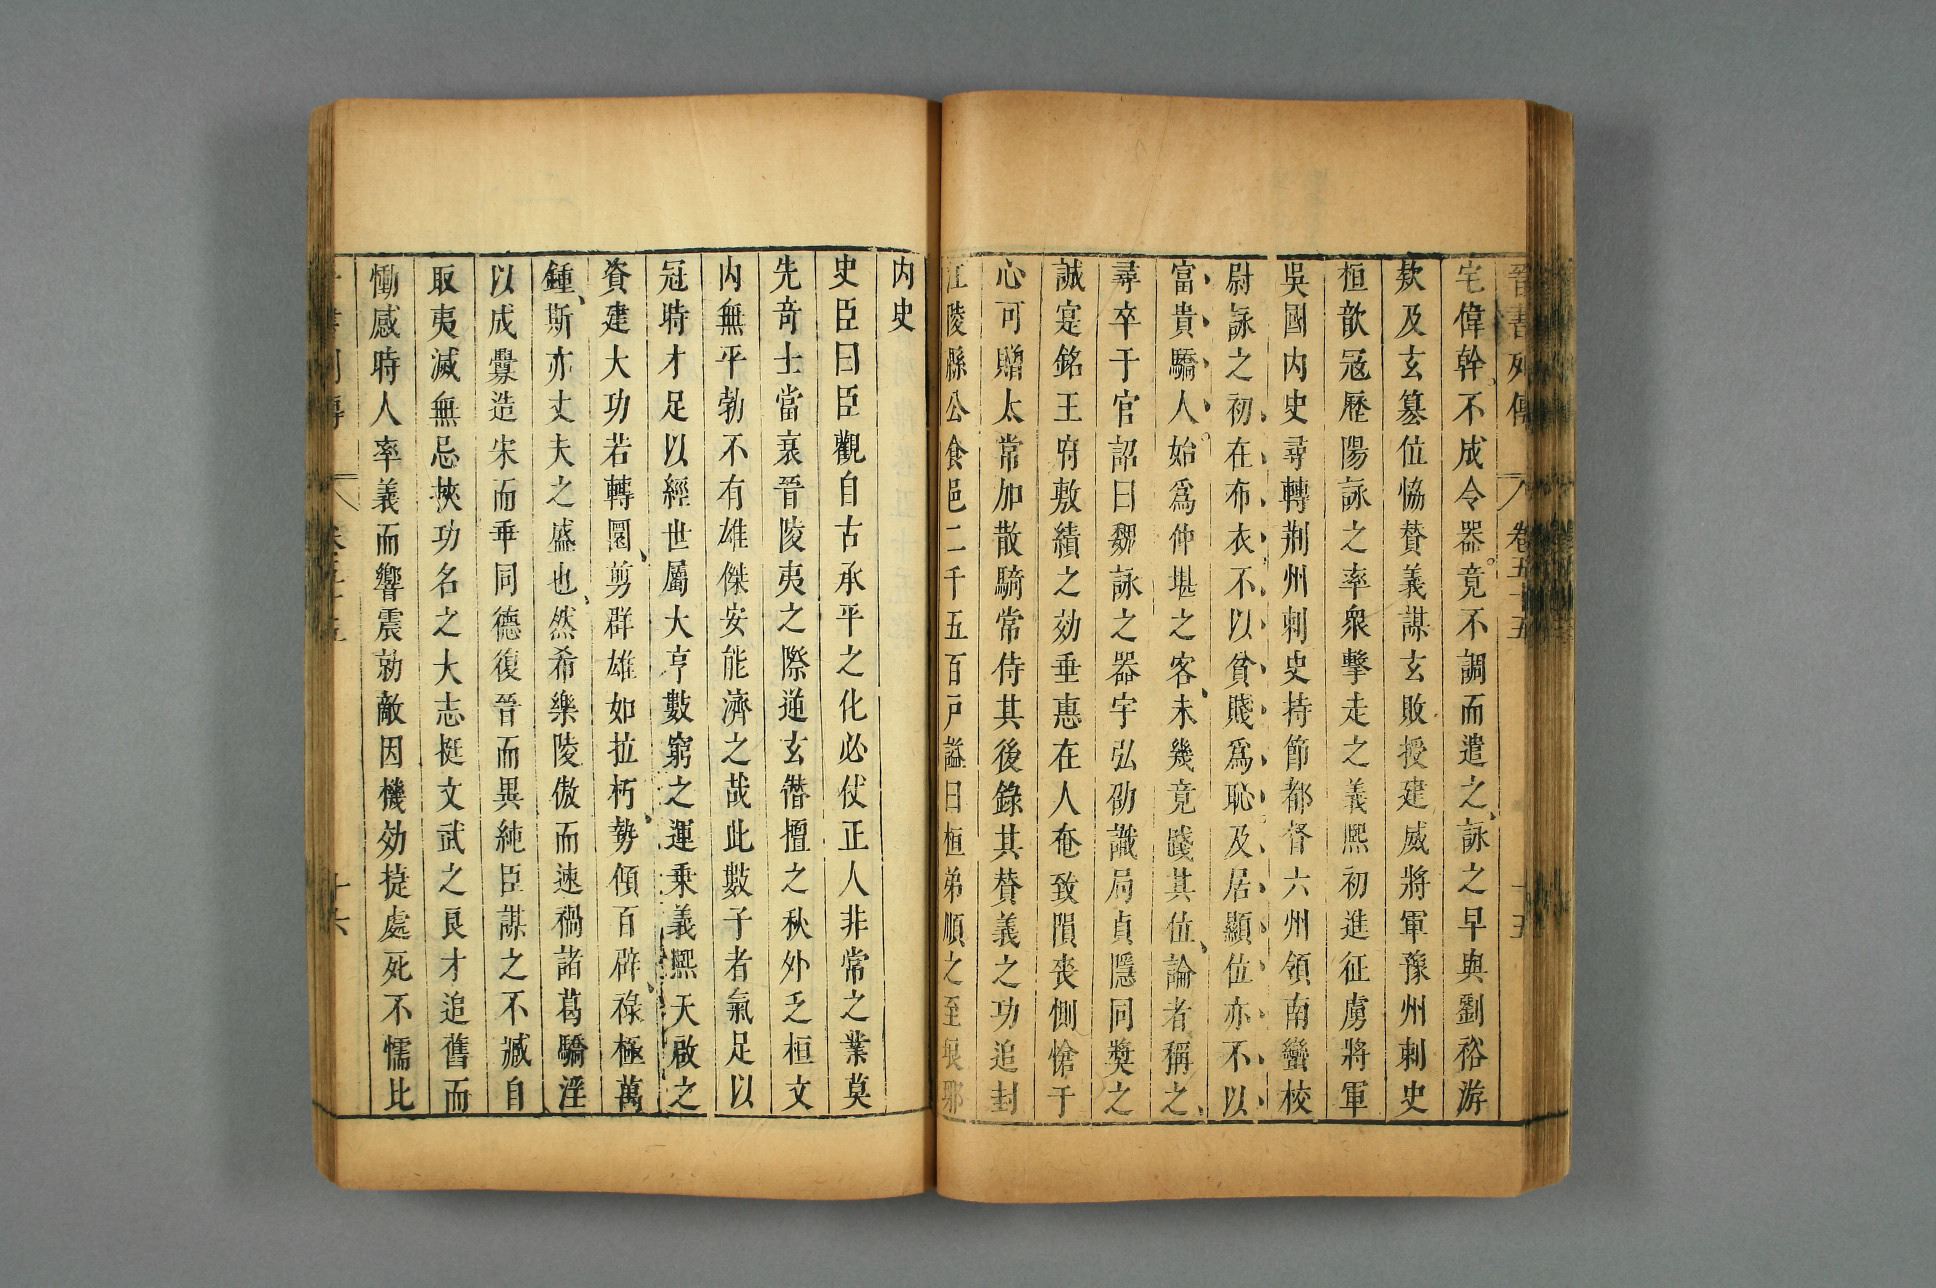 晉書列傳 卷五十五 十五
宅偉幹不成令器竟不調而遣之詠之早與劉裕游
欵及玄篡位恊賛義謀玄敗授建威將軍豫州刺史
桓歆冦歷陽詠之率衆擊走之義熙初進征虜將軍
吳國内史尋轉荆州刺史持節都督六州領南蠻校
尉詠之初在布衣不以貧賤爲恥及居顯位亦不以
富貴驕人始爲仲堪之客未幾竟踐其位論者稱之
尋卒于官詔曰魏詠之器宇弘劭識局貞隱同奬之
誠寔銘王府敷績之効垂惠在人奄致隕喪惻愴于
心可贈太常加散騎常侍其後錄其賛義之功追封
江陵縣公食邑二千五百户諡曰桓弟順之至琅邪
内史
史臣曰臣觀自古承平之化必仗正人非常之業莫
先竒士當衰晉陵夷之際逆玄僭擅之秋外乏桓文
内無平勃不有雄傑安能濟之哉此數子者氣足以
冠時才足以經世屬大亨數窮之運乗義熙天啟之
資建大功若轉圜剪群雄如拉朽勢傾百辟祿極萬
鍾斯亦丈夫之盛也然希樂陵傲而速禍諸葛驕淫
以成釁造宋而乖同德復晉而異純臣謀之不臧自
取夷滅無忌挾功名之大志挺文武之良才追舊而
慟感時人率義而響震勍敵因機効捷處死不懦比
列傳 卷五十五 十六